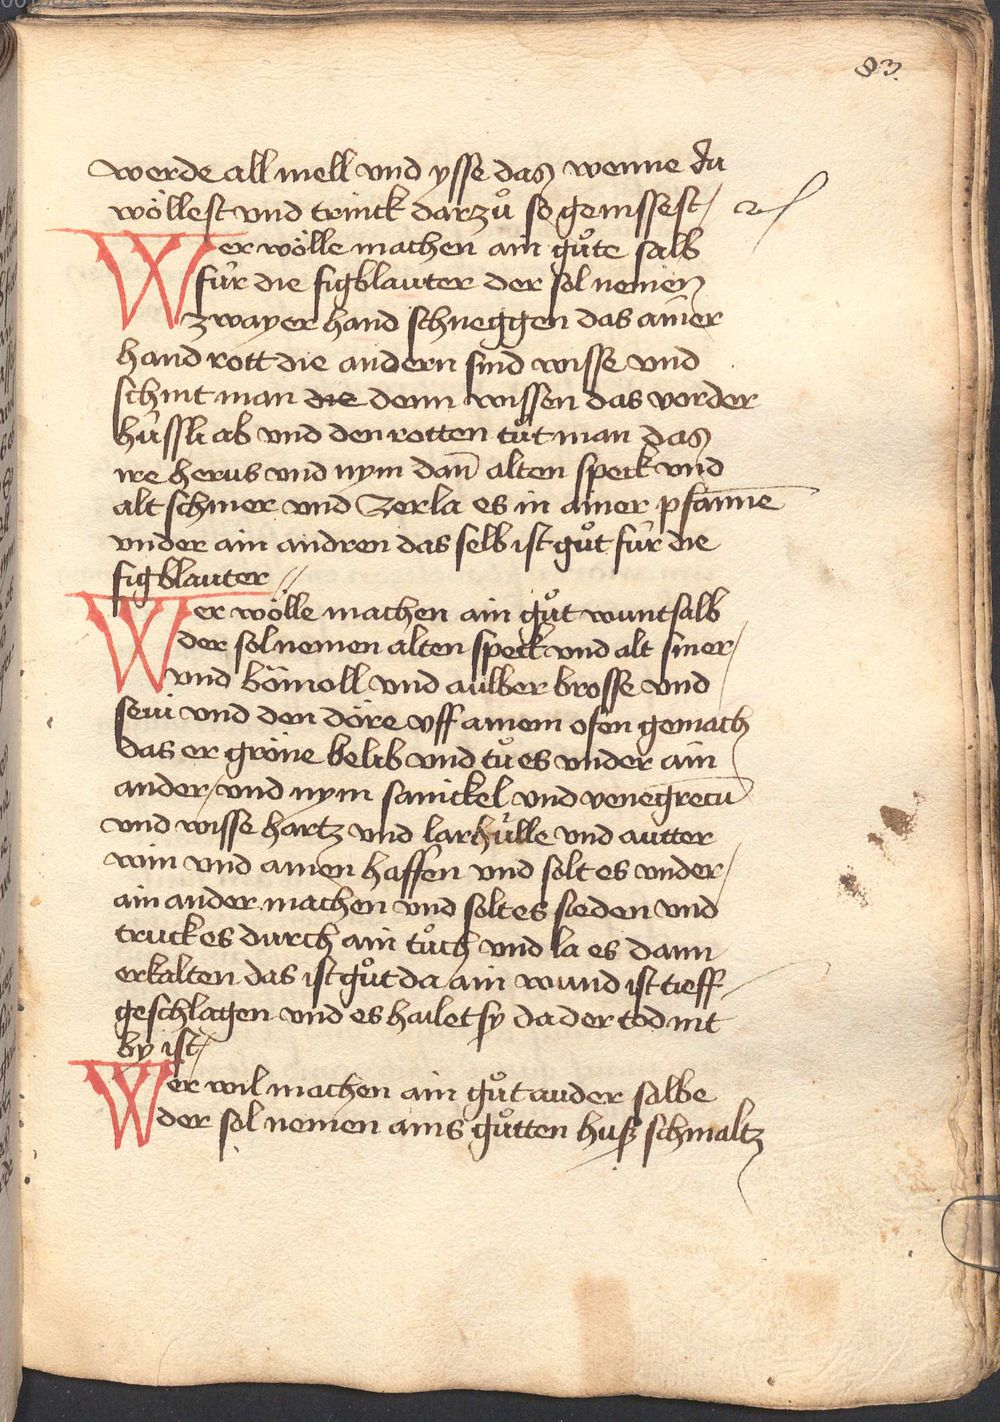 83.
werde all mell vnd ysse das wenne du
wöllest vnd trinck darzuͦ so genissest/
Wer wölle machen ain guͦte salb
für die figblauter der sol nemen
zwayer hand schneggen das ainer
hand rott die andern sind wisse vnd
schint man die denn wissen das vorder
hüssli ab vnd den rotten tuͦt man das
ire herus vnd nym dañ alten speck vnd
alt schmer vnd zerla es in ainer pfanne
vnder ain andren das selb ist guͦt für die
figblauter //
Wer wölle machen ain guͦt wuntsalb
der sol nemen alten speck vnd alt smer/
vnd bömoll vnd aulber brosse vnd
seui vnd den döre vff ainem ofen gemach
das er gröne belib vnd tuͦ es vnder ain
ander/ vnd nym sanickel vnd venegrecū
vnd wisse hartz vnd larhülle vnd autter
win vnd ainen haffen vnd solt es vnder/
ain ander machen vnd solt es sieden vnd
truck es durch ain tuͦch vnd la es dann
erkalten das ist guͦt da ain wund ist tieff
geschlagen vnd es hailet sy da der tod nit
by ist/
Wer wil machen ain guͦt ander salbe
der sol nemen ains guͦtten huß schmaltz